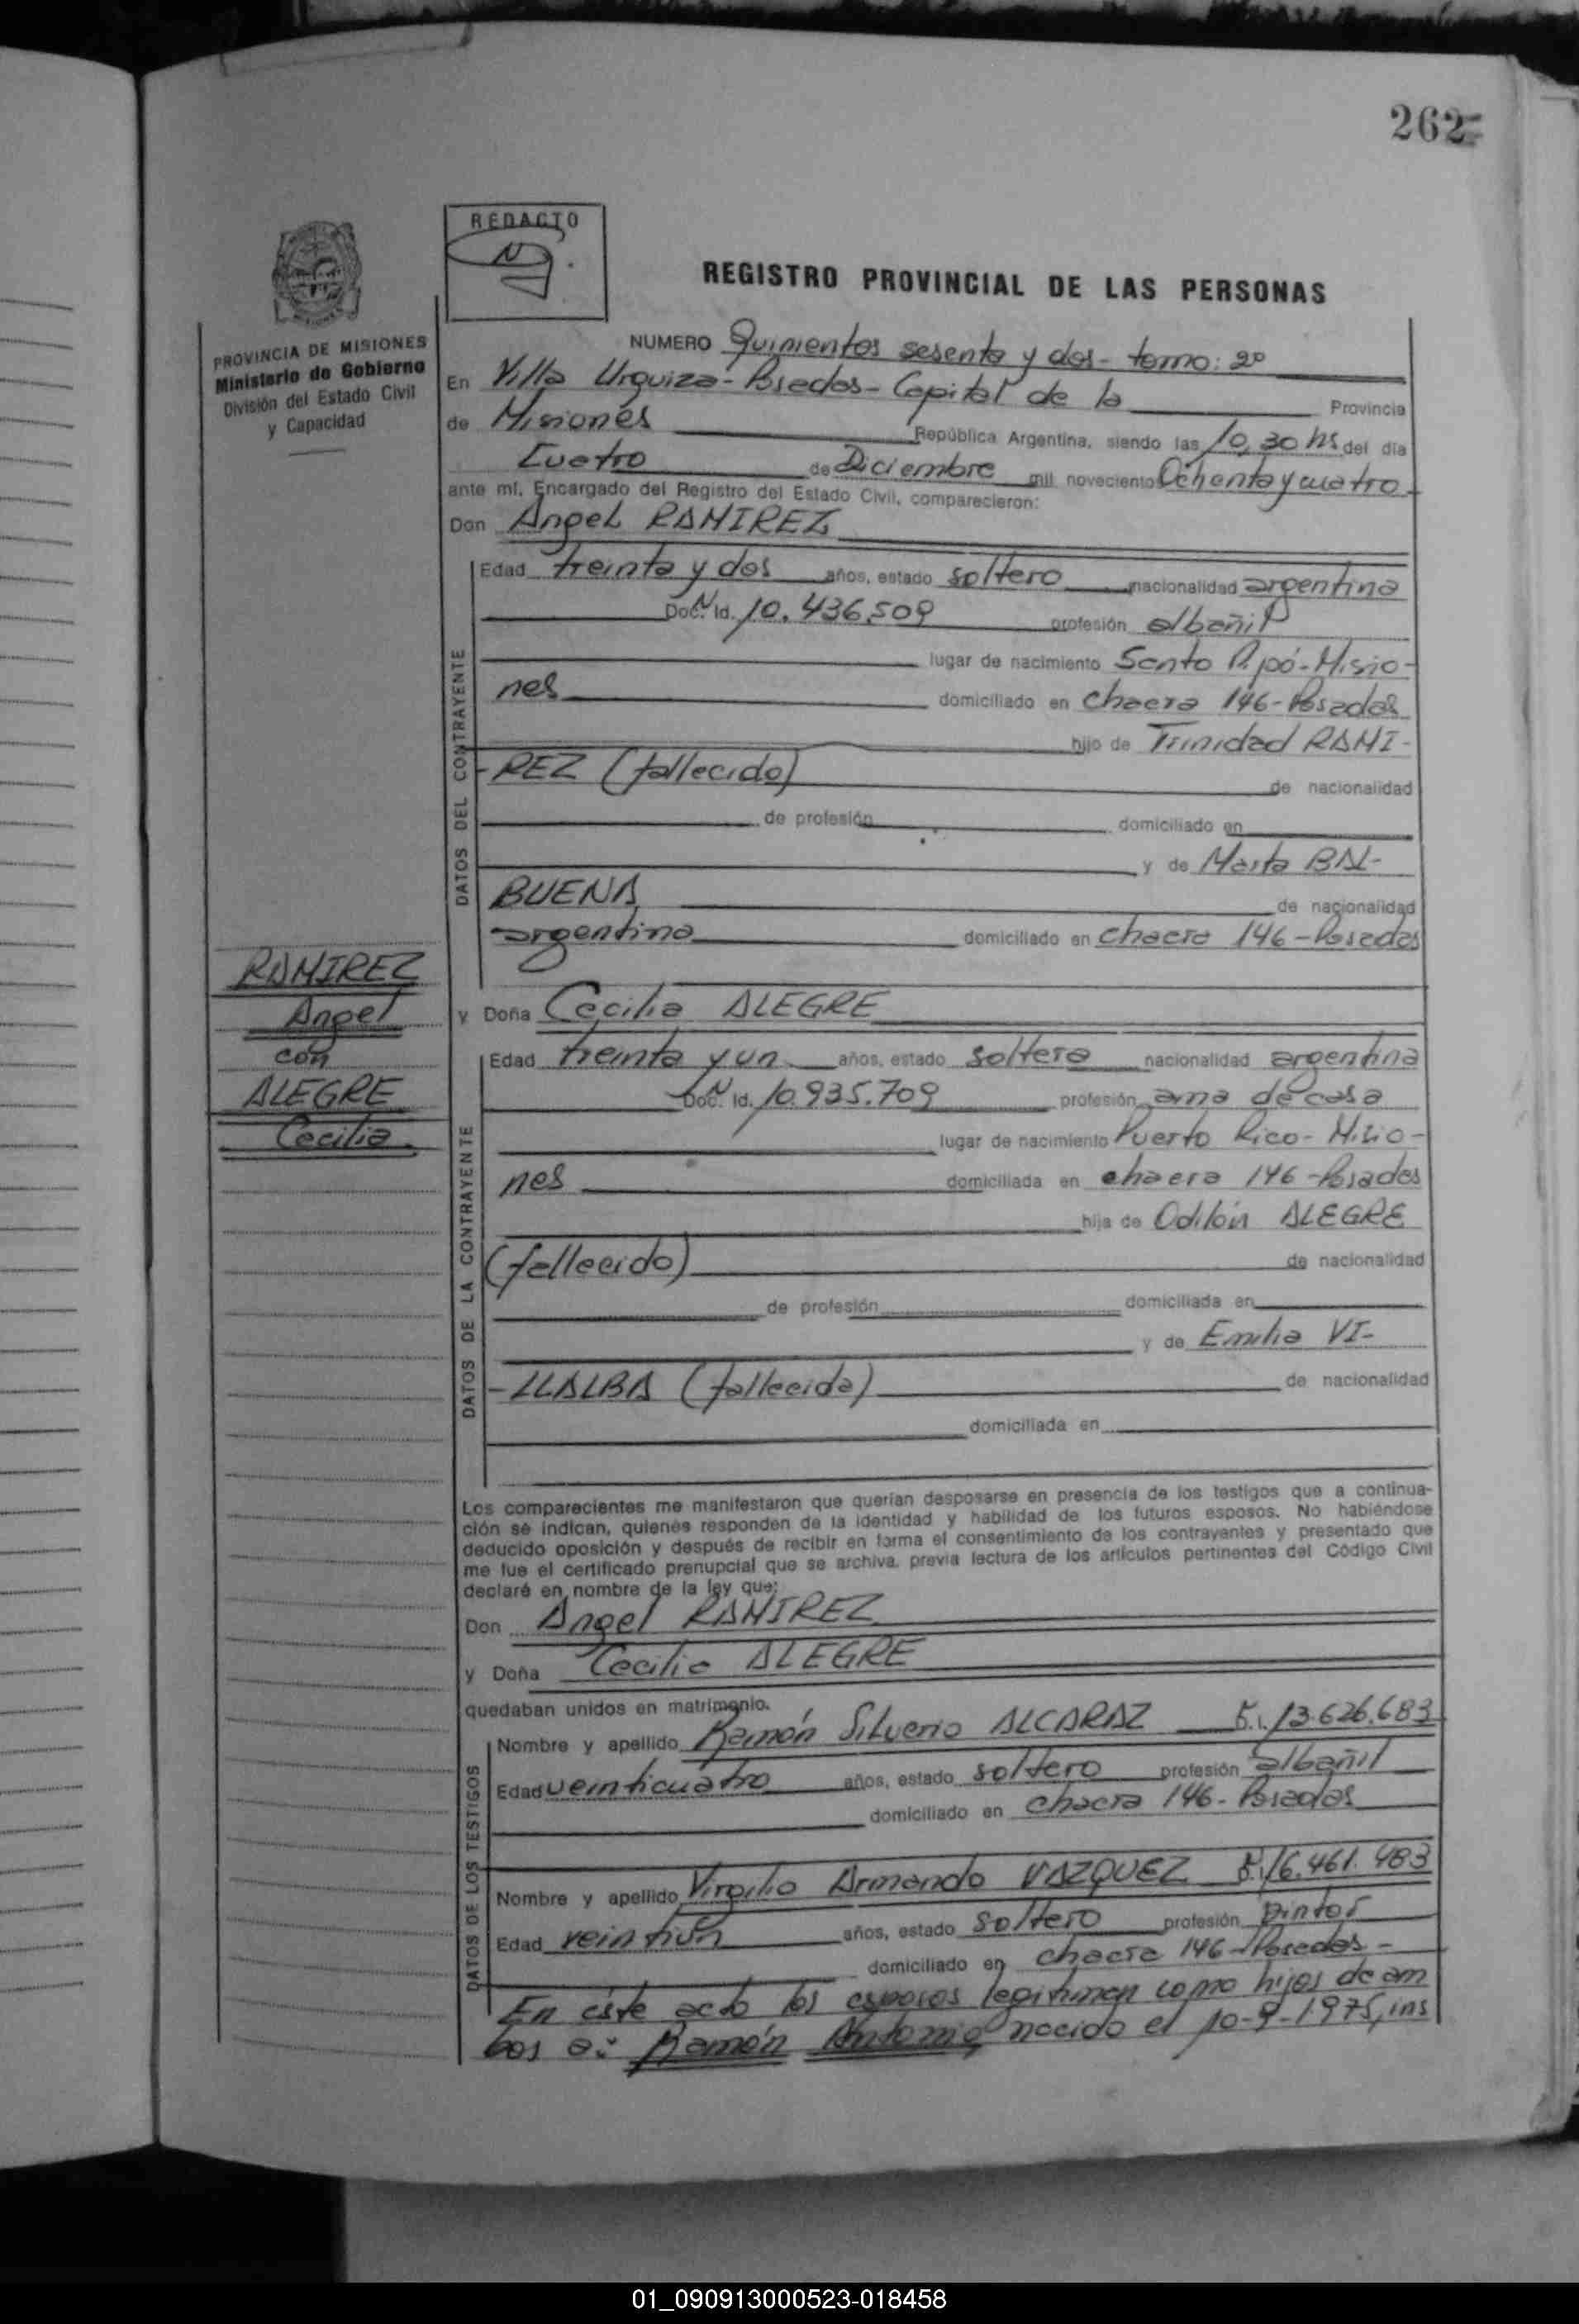 262
REDACTO
REGISTRO PROVINCIAL DE LAS PERSONAS
PROVINCIA DE MISIONES
Ministerio de Gobierno
División del Estado Civil
y Capacidad
NUMERO Quinientos sesenta y dos - tomo: 2º
En Villa Urquiza - Posadas - Capital de la Provincia
de Misiones República Argentina, siendo las 10,30 hs del día
Cuatro de Diciembre mil novecientos Ochenta y cuatro
ante mí, Encargado del Registro del Estado Civil, comparecieron:
Don Angel RAMIREZ
DATOS DEL CONTRAYENTE
Edad treinta y dos años, estado soltero nacionalidad argentina
Doc. Id. 10.436.509 profesión albañil
lugar de nacimiento Santo Pipó - Misio-
nes domiciliado en chacra 146 - Posadas
hijo de Trinidad RAMI-
-REZ (fallecido) de nacionalidad
de profesión domiciliado en
y de Marta BAL-
BUENA de nacionalidad
argentina domiciliado en chacra 146 - Posadas
RAMIREZ
Angel
con
ALEGRE
Cecilia.
y Doña Cecilia ALEGRE
DATOS DE LA CONTRAYENTE
Edad treinta y un años, estado soltera nacionalidad argentina
Doc. Id. 10.935.709 profesión ama de casa
lugar de nacimiento Puerto Rico - Misio-
nes domiciliada en chacra 146 - Posadas
hija de Odilón ALEGRE
(fallecido) de nacionalidad
de profesión domiciliada en
y de Emilia VI-
-LLALBA (fallecida) de nacionalidad
domiciliada en
Los comparecientes me manifestaron que querían desposarse en presencia de los testigos que a continua-
ción se indican, quienes responden de la identidad y habilidad de los futuros esposos. No habiéndose
deducido oposición y después de recibir en forma el consentimiento de los contrayentes y presentado que
me fue el certificado prenupcial que se archiva, previa lectura de los artículos pertinentes del Código Civil
declaré en nombre de la ley que:
Don Angel RAMIREZ
y Doña Cecilia ALEGRE
quedaban unidos en matrimonio.
DATOS DE LOS TESTIGOS
Nombre y apellido Ramón Silverio ALCARAZ 13.626.683
Edad veinticuatro años, estado soltero profesión albañil
domiciliado en chacra 146 - Posadas
Nombre y apellido Virgilio Armando VAZQUEZ 16.461.483
Edad veintiún años, estado soltero profesión pintor
domiciliado en chacra 146 - Posadas -
En éste acto los esposos legitiman como hijos de am
bos a: Ramón Antonio, nacido el 10-9-1975, ins
01_090913000523-018458